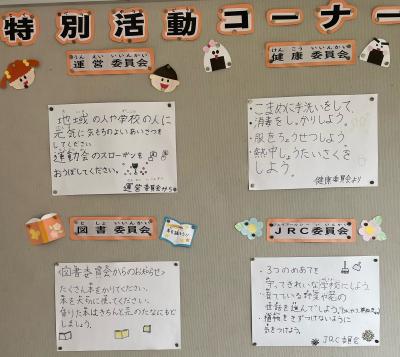 特別活動コーナー
うんえい いいんかい
運営委員会
けんこう いいんかい
健康委員会
地域の人や学校の人に
元気に気もちのよいあいさつを
してください。
運動会のスローガンを
おうぼしてください。
運営委員会から
こまめに手洗いをして、
消毒をしっかりしよう。
・服をちょうせつしよう
・熱中しょうたいさくを
しよう。
健康委員会より
としょ いいんかい
図書委員会
いいんかい
JRC委員会
〈図書委員会からのお知らせ〉
たくさん本をかりてください。
本を大切に使ってください。
借りた本はきちんと元のたなにもど
しましょう。
・3つのめあてを
守ってきれいな学校にしよう
・育てている野菜や花の
世話を進んでしよう。
・植物をきずつけないように
気をつけよう。
JRC委員会